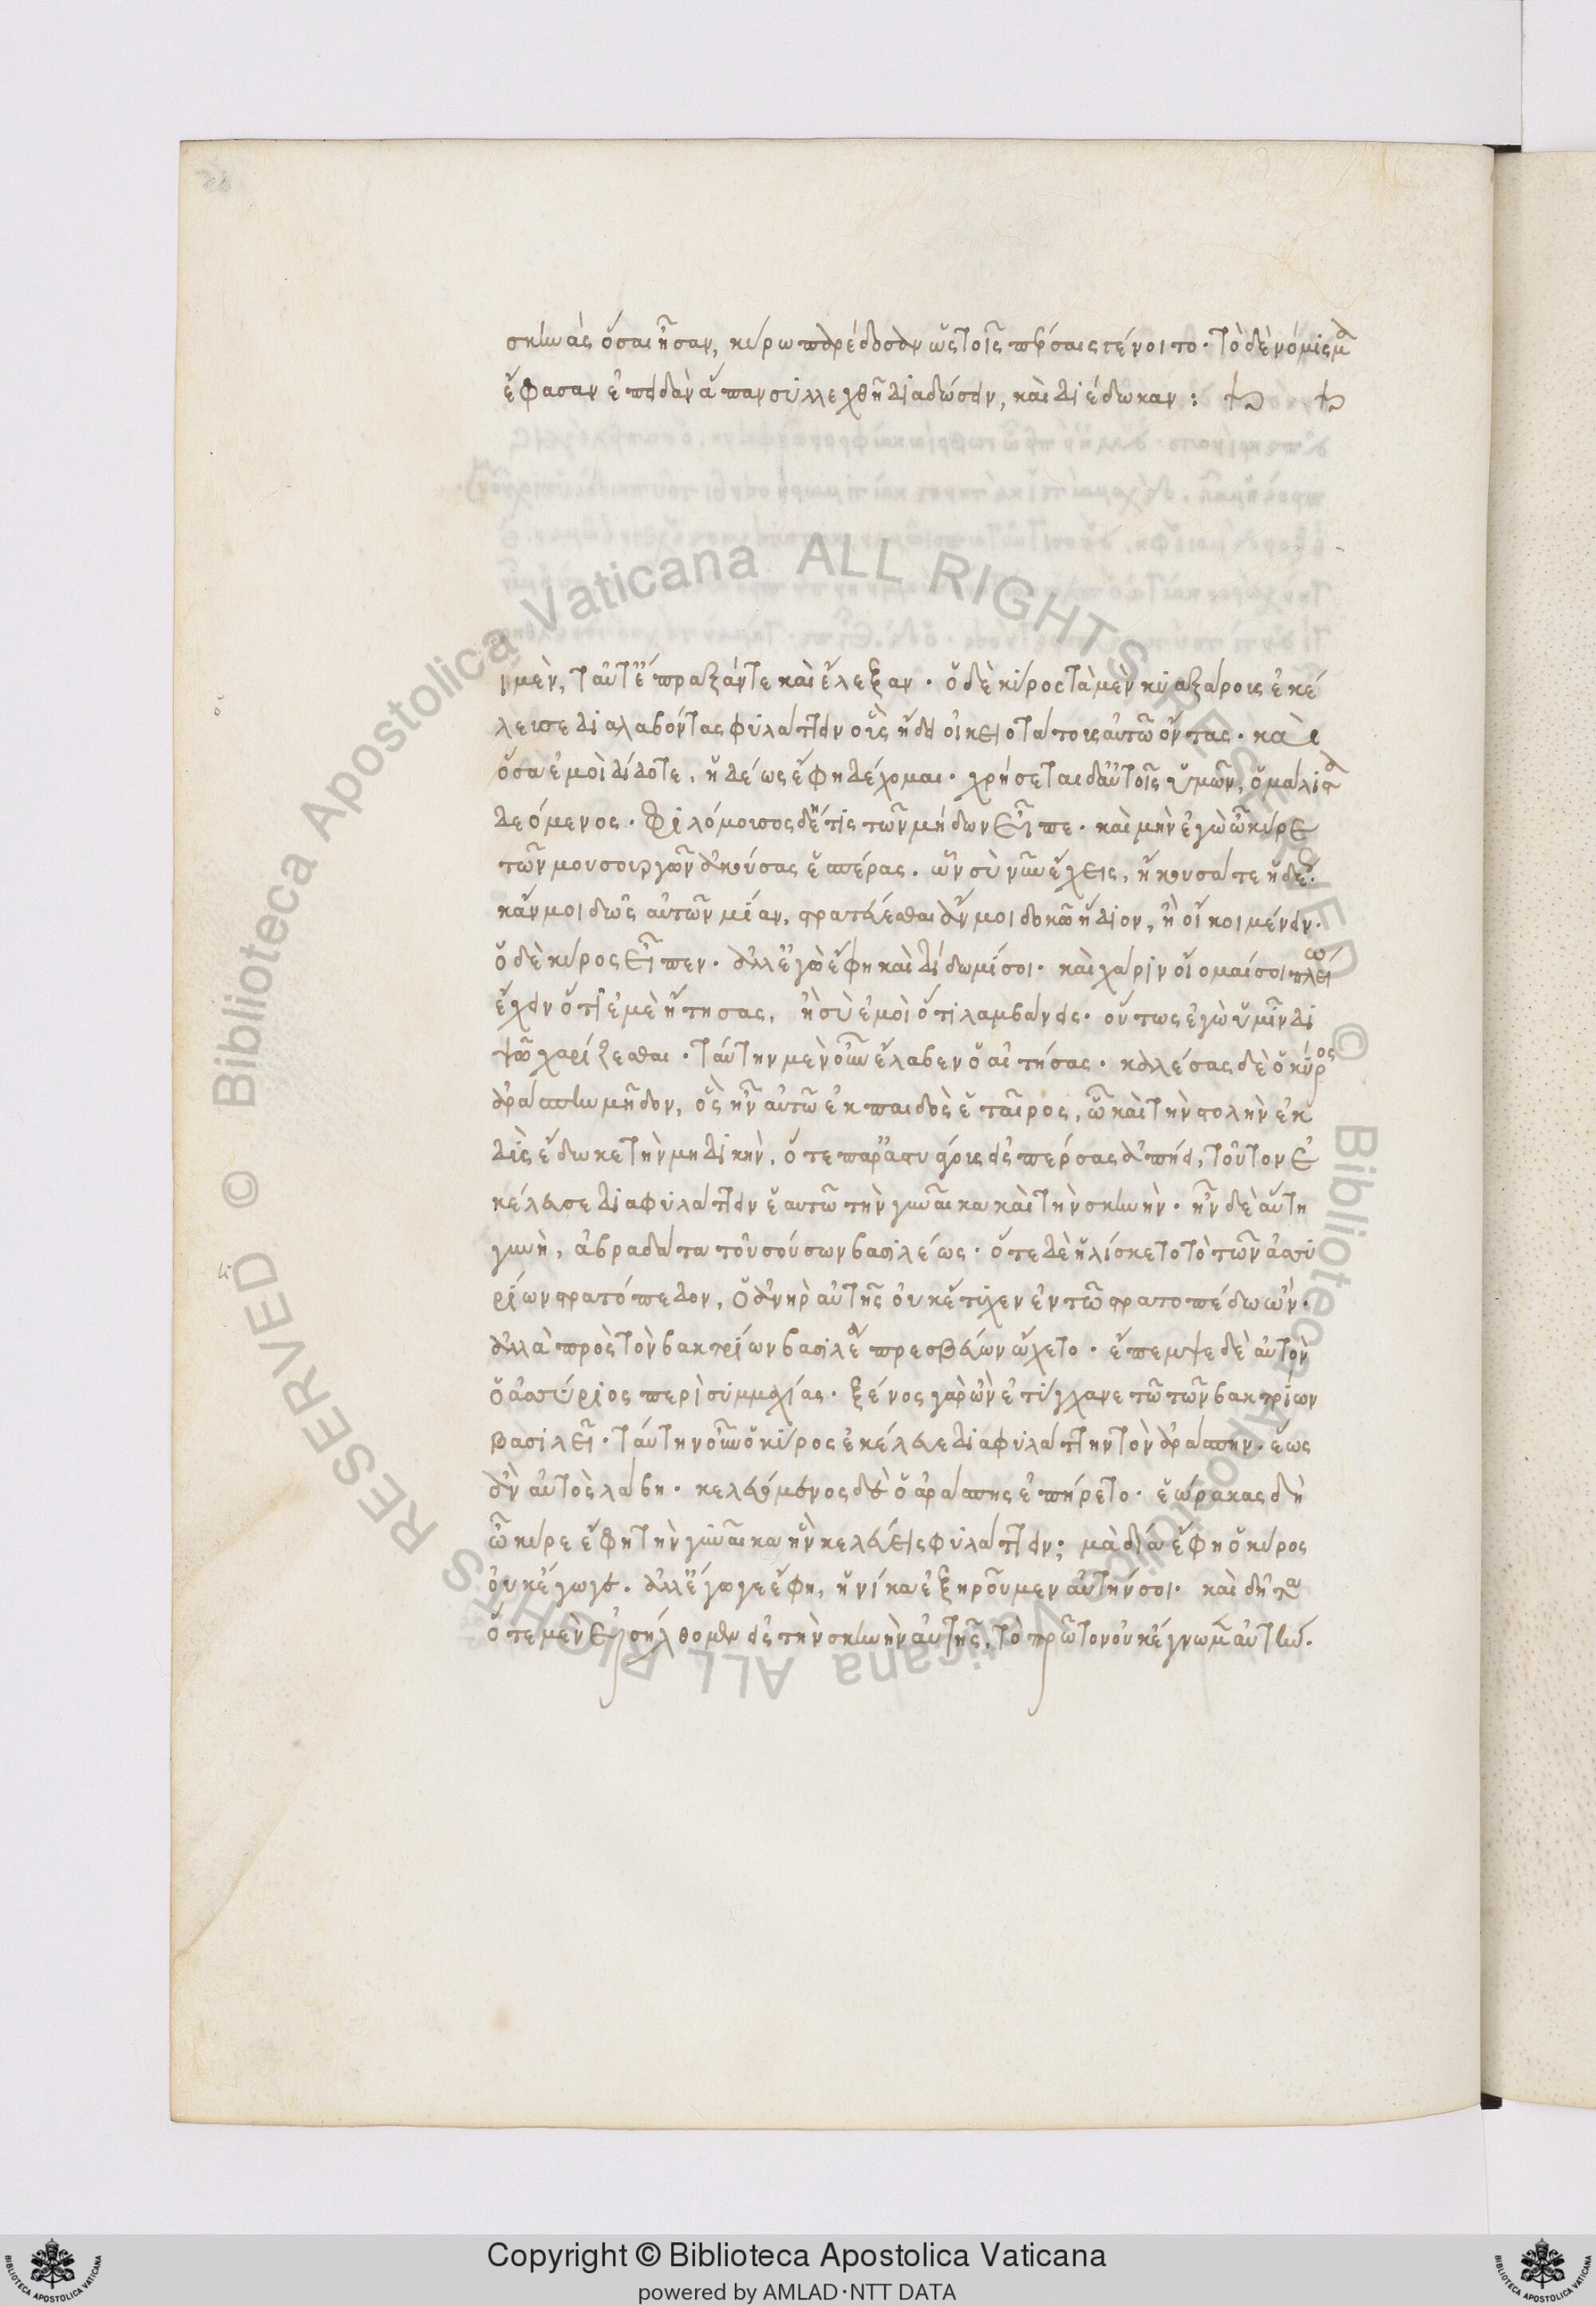 σκηνὰς ὅσαι ἦσαν, κύρω παρέδοσαν ὡς τοῖς πέρσαις γένοιτο. τὸ δὲ νόμισμα
ἔφασαν ἐπειδὰν ἅπαν συλλεχθῆ διαδώσειν, καὶ διέδωκαν :
μὲν, ταῦτ' ἔπραξάν τε καὶ ἔλεξαν. ὁ δὲ κύρος τὰ μὲν κυαξάρους ἐκέ
λευσε διαλαβόντας φυλάττειν οὓς ἤδει οἰκειοτάτους αὐτῶ ὄντας. καὶ
ὅσα ἐμοὶ δίδοτε, ἡδέως ἔφη δέχομαι. χρήσεται δ' αὐτοῖς ὑμῶν, ὁ μάλιστα
δεόμενος. φιλόμουσος δή τις τῶν μήδων εἶπε. καὶ μὴν ἐγὼ ὦ κύρε
τῶν μουσουργῶν ἀκούσας ἑσπέρας. ὧν σὺ νῦν ἔχεις, ἤκουσά τε ἡδέως.
κἄν μοι δῶς αὐτῶν μίαν, στρατεύεσθαι ἄν μοι δοκῶ ἥδιον, ἢ οἴκοι μένειν.
ὁ δὲ κύρος εἶπεν. ἀλλ' ἐγὼ ἔφη καὶ δίδωμί σοι. καὶ χάριν οἴομαί σοι πλείω
ἔχειν ὅτι ἐμὲ ἤτησας, ἢ σὺ ἐμοὶ ὅτι λαμβάνεις. οὕτως ἐγὼ ὑμῖν δι
ψῶ χαρίζεσθαι. ταύτην μὲν οὖν ἔλαβεν ὁ αἰτήσας. καλέσας δὲ ὁ κύρος
ἀράσπην μῆδον, ὃς ἦν αὐτῶ ἐκ παιδὸς ἑταῖρος, ὧ καὶ τὴν στολὴν ἐκ
δὺς ἔδωκε τὴν μηδικὴν, ὅτε παρ' ἀστυάγους εἰς πέρσας ἀπήει, τοῦτον ἐ
κέλευσε διαφυλάττειν ἑαυτῶ τὴν γυναῖκα καὶ τὴν σκηνὴν. ἦν δὲ αὕτη
γυνὴ, ἀβραδάτα τοῦ σούσων βασιλέως. ὅτε δὲ ἡλίσκετο τὸ τῶν ἀσσυ
ρίων στρατόπεδον, ὁ ἀνὴρ αὐτῆς οὐκ ἔτυχεν ἐν τῶ στρατοπέδω ὤν.
ἀλλὰ πρὸς τὸν βακτρίων βασιλέα πρεσβεύων ὤχετο. ἔπεμψε δὲ αὐτὸν
ὁ ἀσσύριος περὶ συμμαχίας. ξένος γὰρ ὢν ἐτύγχανε τῶ τῶν βακτρίων
βασιλεῖ. ταύτην οὖν ὁ κύρος ἐκέλευε διαφυλάττην τὸν ἀράσπην. ἕως
ἂν αὐτὸς λάβη. κελευόμενος δὲ ὁ ἀράσπης ἐπήρετο. ἑώρακας δὴ
ὦ κύρε ἔφη τὴν γυναῖκα ἣν κελεύεις φυλάττειν; μὰ δί' ἔφη ὁ κύρος
οὐκ ἔγωγε. ἀλλ' ἔγωγε ἔφη, ἡνίκα ἐξηροῦμεν αὐτήν σοι. καὶ δῆτα
ὅτε μὲν εἰσήλθομεν εἰς τὴν σκηνὴν αὐτῆς, τὸ πρῶτον οὐκ ἔγνωμεν αὐτήν.
© Biblioteca Apostolica Vaticana ALL RIGHTS RESERVED
© Biblioteca Apostolica Vaticana ALL RIGHTS RESERVED
Copyright © Biblioteca Apostolica Vaticana
powered by AMLAD·NTT DATA
BIBLIOTECA APOSTOLICA VATICANA
BIBLIOTECA APOSTOLICA VATICANA